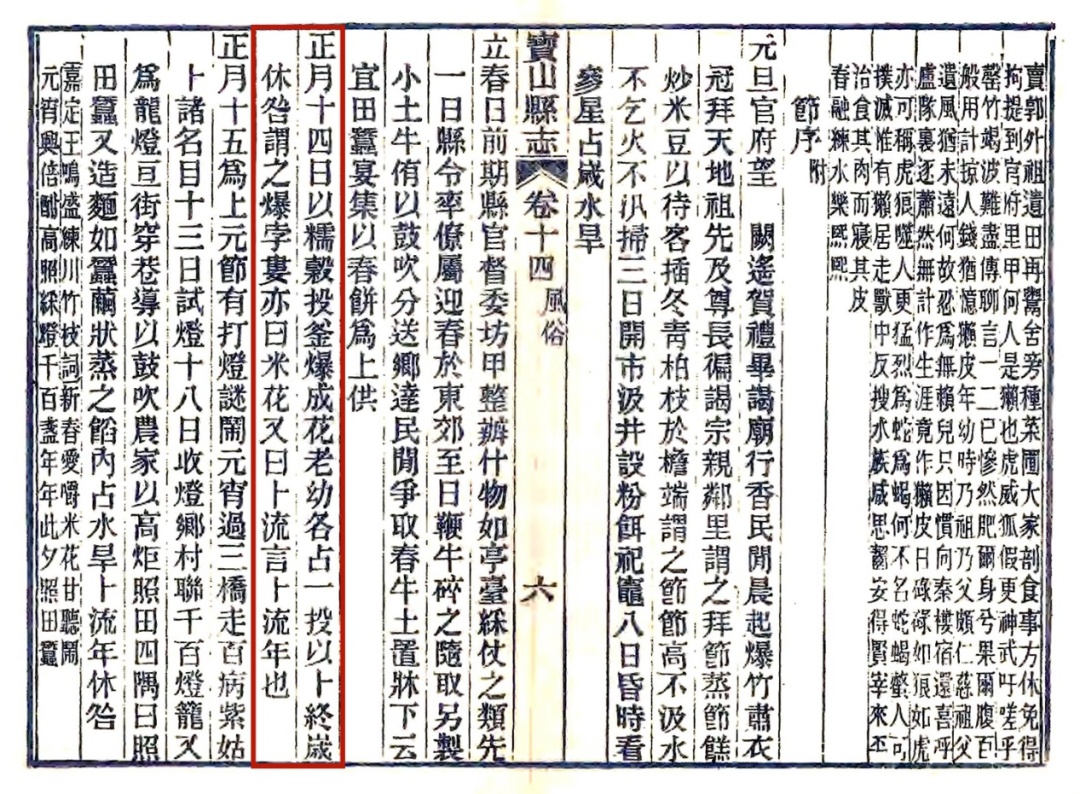 賣郭外祖遺田再鬻舍旁種菜圃大家剖食事方休免得
拘提到官府里甲何人是獺也虎威狐假更神武吁嗟乎
罄竹竭波難盡傳聊言一二已慘然肥爾身兮果爾腹百
般用計掠人錢猶憶獺皮年幼時乃祖乃父頗仁慈祖父
遺風猶未遠何故忍爲無賴兒只因慣向秦樓宿還喜呼
盧隊裏逐蕭然無計作生涯竟作獺皮日碌碌如狼如虎
亦可稱虎狼噬人更猛烈爲蛇爲蝎何不名蛇蝎螫人可
撲滅惟有獺居走獸中反搜水族咸思齧安得賢宰來丕
治食其肉而寢其皮
春融練水樂熙熙
節序附
元旦官府望 闕遙賀禮畢謁廟行香民間晨起爆竹肅衣
冠拜天地祖先及尊長徧謁宗親鄰里謂之拜節蒸節餻
炒米豆以待客插冬靑柏枝於檐端謂之節節高不汲水
不乞火不汛掃三日開市汲井設粉餌祀竈八日昏時看
參星占歲水旱
寶山縣志 卷十四風俗 六
立春日前期縣官督委坊甲整辦什物如亭臺綵仗之類先
一日縣令率僚屬迎春於東郊至日鞭牛碎之隨取另製
小土牛侑以鼓吹分送鄉達民間爭取春牛土置牀下云
宜田蠶宴集以春餅爲上供
正月十四日以糯穀投釜爆成花老幼各占一投以卜終歲
休咎謂之爆孛婁亦曰米花又曰卜流言卜流年也
正月十五爲上元節有打燈謎鬧元宵過三橋走百病紫姑
卜諸名目十三日試燈十八日收燈鄉村聯千百燈籠又
爲龍燈亘街穿巷導以鼓吹農家以高炬照田四隅曰照
田蠶又造麵如蠶繭狀蒸之餡內占水旱卜流年休咎
嘉定王鳴盛練川竹枝詞新春愛嚼米花甘聽鬧
元宵興倍酣高照綵燈千百盞年年此夕照田蠶